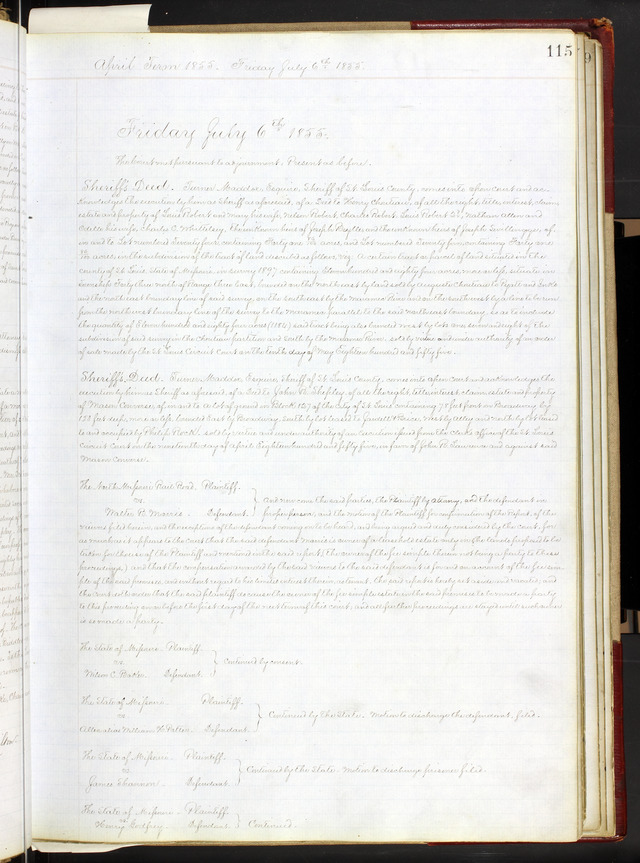 115
April Term 1855. Friday July 6th 1855
Friday July 6th 1855.
The Court met pursuant to adjournment. Present as before.
Sheriff's Deed. Turner Maddox Esquire, Sheriff of St. Louis County, comes into open court and ac-
knowledges the execution by him as Sheriff as aforesaid, of a Deed to Henry Chouteau, of all the right, title, interest, claim
estate and property of Louis Robert and Mary his wife, Nelson Robert, Charles Robert, Louis Robert Jr, William Allen and
his wife, Charles C. Whittelsey, the unknown heirs of Joseph and the unknown heirs of Joseph of
in and to Lot numbered Twenty four containing Forty acres and Lot numbered Twenty five containing Forty acres
in the subdivision of the tract of land described as follows, viz: A certain tract or parcel of land situated in the
county of St. Louis State of Missouri, in survey 1897 containing and eighty four acres, more or less, situate in
Township Forty two north of Range three east, bounded on the north east by land sold by Auguste Chouteau to
and on the north east boundary line of said survey, on the south east by the Maramec River and on the south west by a line to be run
from the north west boundary line of the survey to the Maramec parallel to the said north east boundary, so as to include
the quantity of Eleven hundred and eighty four acres (1184) said tract being also bounded west by lots one, seven and eight of the
subdivision of said survey in the Chouteau partition and south by the Maramec River. sold by virtue and under authority of an order
of sale made by the St. Louis Circuit Court on the tenth day of May Eighteen hundred and fifty five.
Sheriff's Deed. Turner Maddox Esquire, Sheriff of St. Louis County, comes into open court and acknowledges the
execution by him as Sheriff as aforesaid, of a Deed to John R. Shepley, of all the right, title, interest, claim, estate and property
of Mason Converse, of, in and to a lot of ground in Block 127 of the City of St. Louis containing 75 feet front on Broadway by
150 feet deep, more or less, bounded East by Broadway, South by lot leased to Jewett & Price, West by alley and north by lot leased
to and occupied by Philip Flock. sold by virtue and under authority of an Execution issued from the clerk's office of the St. Louis
Circuit Court on the nineteenth day of April Eighteen hundred and fifty five, in favor of John D. and against said
Mason Converse.
The North Missouri Rail Road. Plaintiff.
vs.
Walter B. Morris. Defendant.
And now come the said parties, the Plaintiff by attorney, and the defendant in
proper person, and the motion of the Plaintiff for confirmation of the Report of the
viewers filed herein, and the exceptions of the defendant coming on to be heard, and being argued and duly considered by the court, for
as much as it appears to the Court that the said defendant Morris is owner of a leasehold estate only in the lands proposed to be
taken for the use of the Plaintiff and mentioned in the said report, (the owner of the fee simple therein not being a party to these
proceedings) and that the compensation awarded by the said viewers to the said defendant is for and on account of the fee sim-
ple of the said premises, and without regard to his limited interest therein, as tenant, the said report is hereby set aside and vacated, and
the Court orders that the said plaintiff do cause the owner of the fee simple estate in the said premises to be made a party
to this proceeding on or before the first day of the next term of this court, and all further proceedings are stayed until such owner
is so made a party.
The State of Missouri. Plaintiff.
vs.
Wilson C. Defendant.
Continued by consent.
The State of Missouri. Plaintiff.
vs.
Allen alias William H. Patten. Defendant.
Continued by the State. Motion to discharge the defendant, filed.
The State of Missouri. Plaintiff.
vs.
James Shannon. Defendant.
Continued by the State. Motion to discharge prisoner filed.
The State of Missouri. Plaintiff.
vs
Henry Godfrey. Defendant.
Continued.